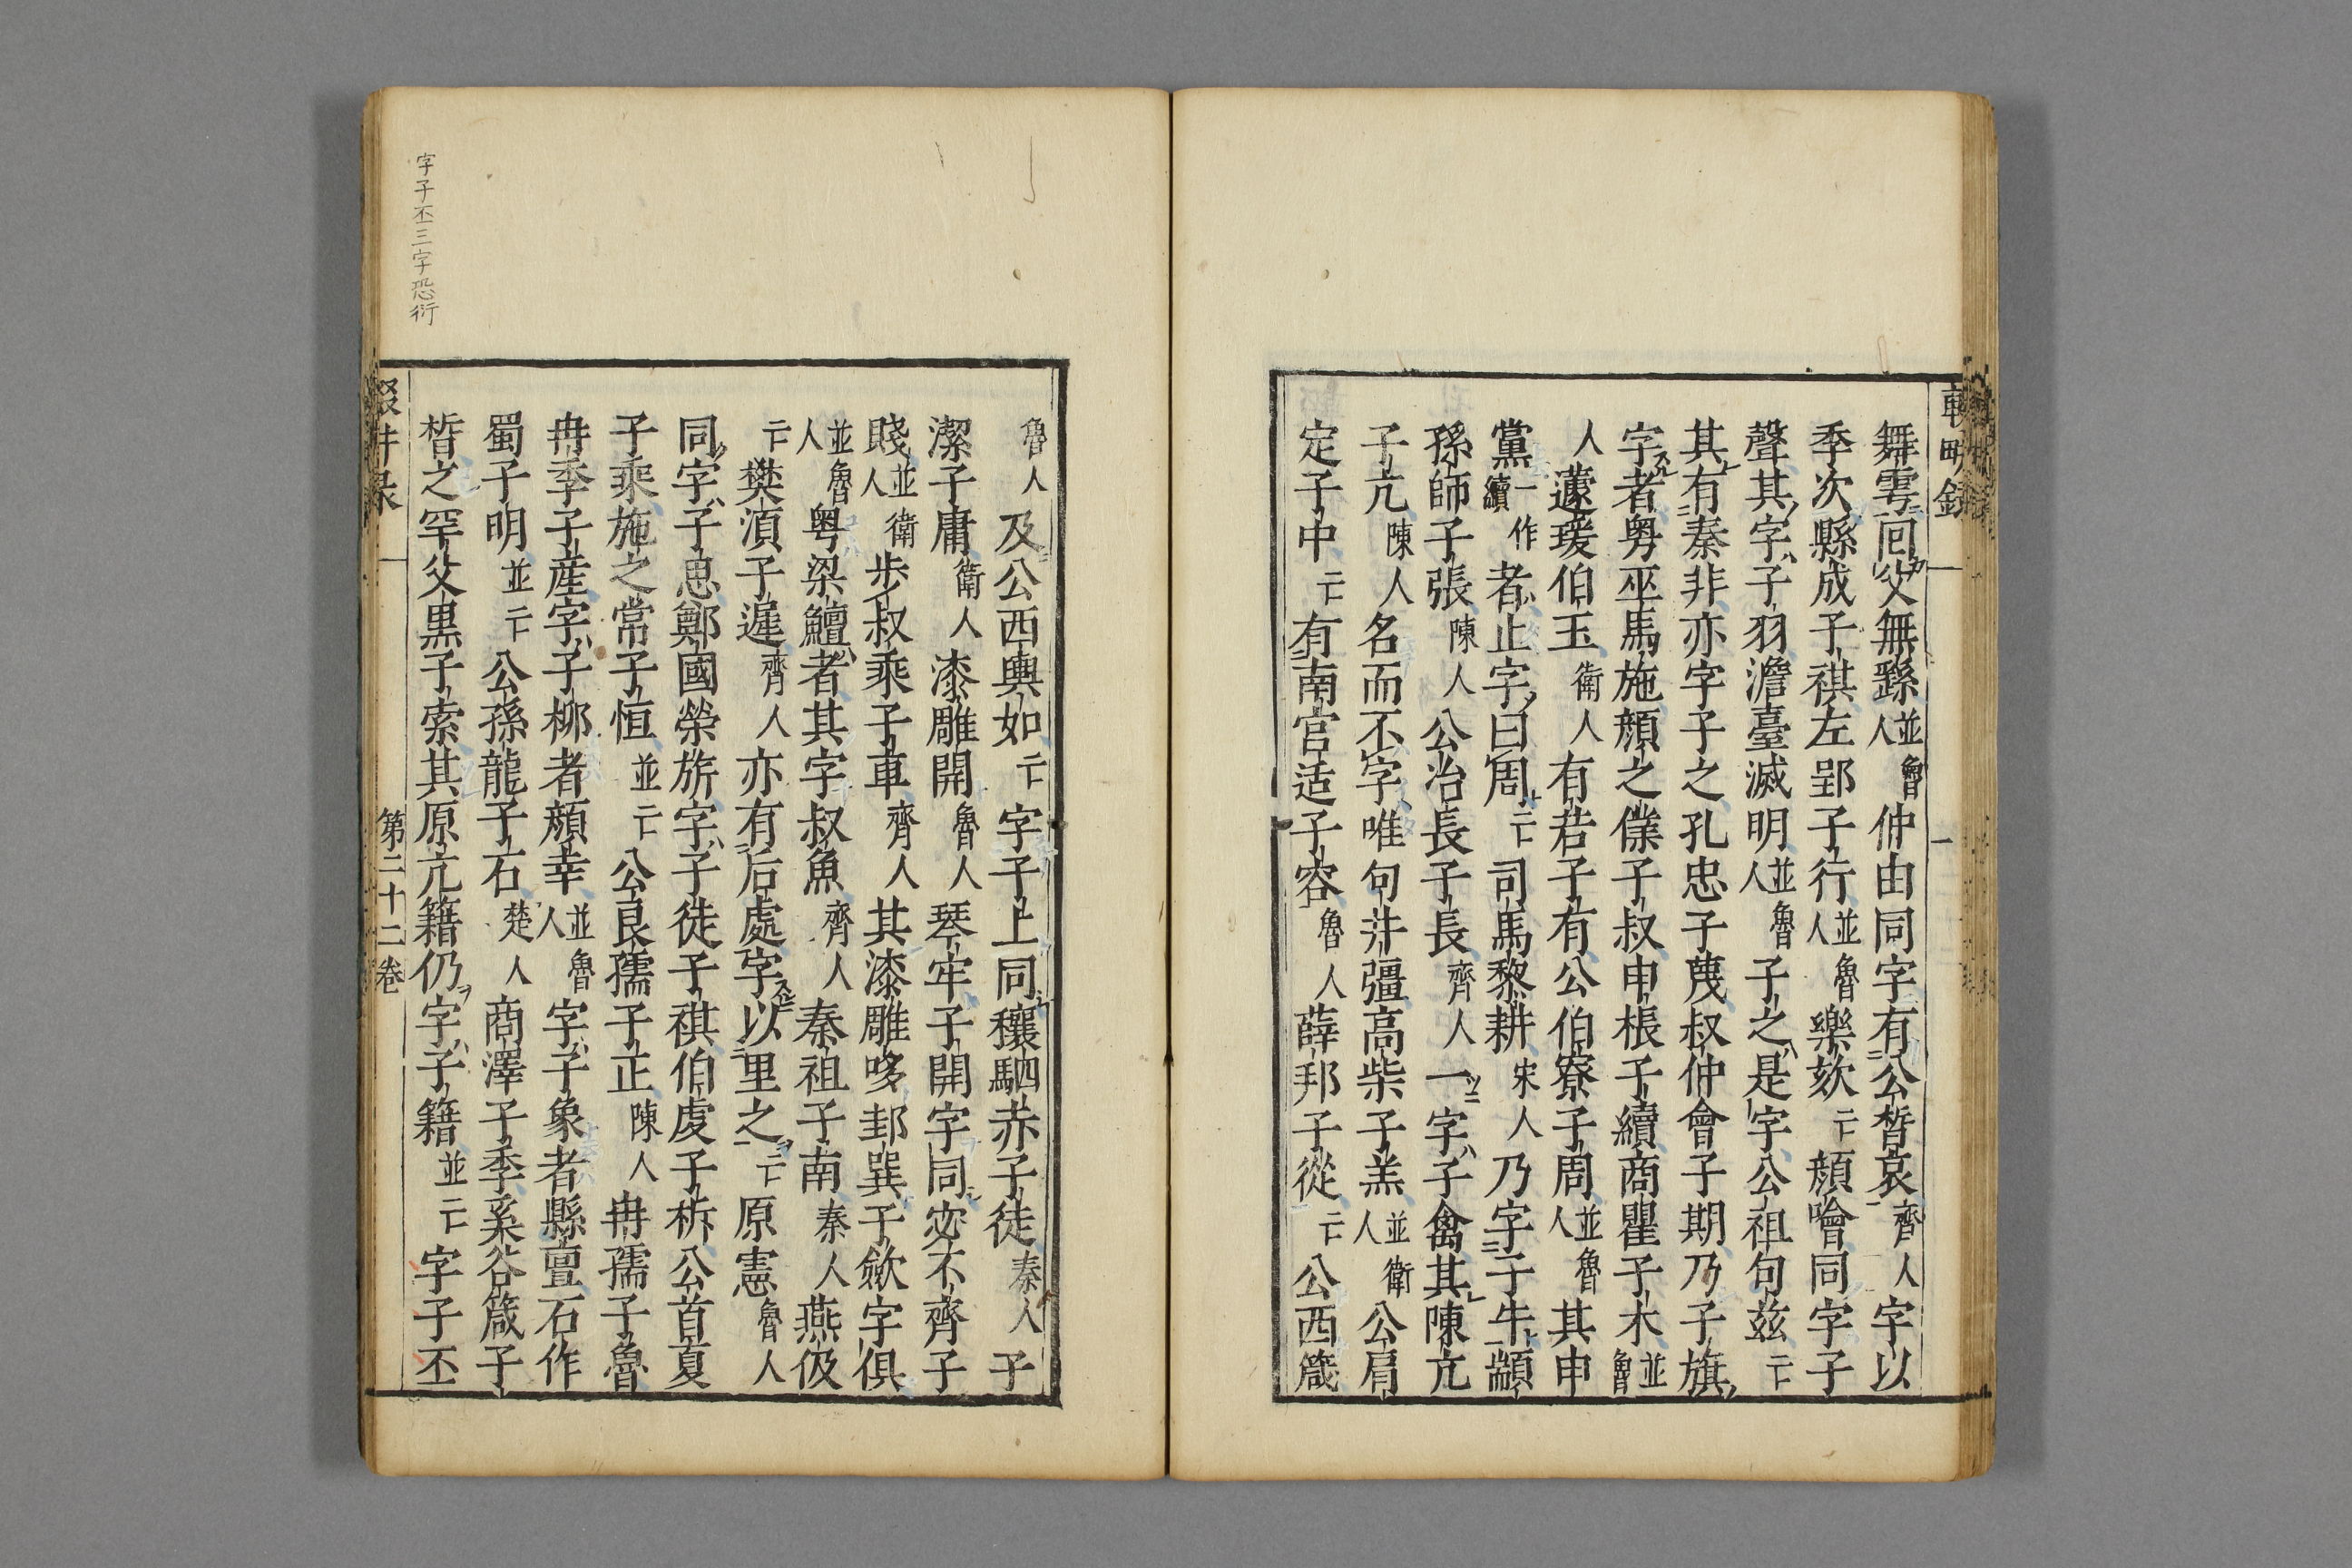 舞雩囘父無繇並魯人仲由同字有公晳哀齊人字以
季次縣成子祺左郢子行並魯人樂欬亡顏噲同字子
聲其字子羽澹臺滅明並魯人子之是字公祖句茲亡
其有秦非亦字子之孔忠子蔑叔仲會子期乃子旗
字者粤巫馬施顏之僕子叔申棖子續商瞿子木並魯
人蘧瑗伯玉衛人有若子有公伯寮子周並魯人其申
黨一作續者止字曰周亡司馬黎耕宋人乃字子牛顓
孫師子張陳人公冶長子長齊人一字子禽其陳亢
子亢陳人名而不字唯句井彊高柴子羔並衛人公肩
定子中亡有南宮适子容魯人薛邦子從亡公西箴
魯人及公西輿如亡字子上同穰駟赤子徒秦人子
潔子庸衛人漆雕開魯人琴牢子開字同宓不齊子
賤並衛人步叔乘子車齊人其漆雕哆邽巽子歛字俱
並魯人粤梁鱣者其字叔魚齊人秦祖子南秦人燕伋
亡樊須子遲齊人亦有后處字以里之亡原憲魯人
同字子思鄭國榮旂字子徒子祺伯虔子析公首夏
子乘施之常子恒並亡公良孺子正陳人冉孺子魯
冉季子産字子柳者顏幸並魯人字子象者縣亶石作
蜀子明並亡公孫龍子石楚人商澤子季奚容箴子
晳之罕父黒子索其原亢籍仍字子籍並亡字子丕
第二十二卷
字子丕三字恐衍